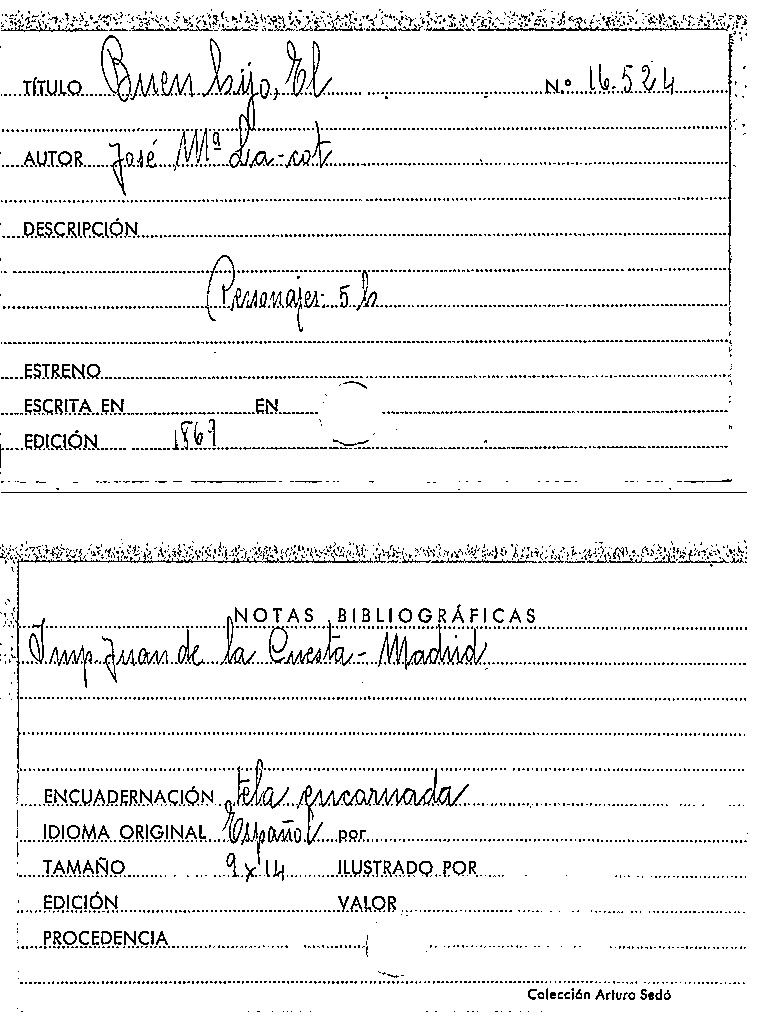 TÍTULO Buen hijo, El N.º 16.524
AUTOR José Mª La-cot
DESCRIPCIÓN
Personajes: 5 h
ESTRENO
ESCRITA EN EN
EDICIÓN 1867
NOTAS BIBLIOGRÁFICAS
Imp. Juan de la Cuesta - Madrid
ENCUADERNACIÓN tela encarnada
IDIOMA ORIGINAL Español por
TAMAÑO 9 x 14 ILUSTRADO POR
EDICIÓN VALOR
PROCEDENCIA
Colección Arturo Sedó